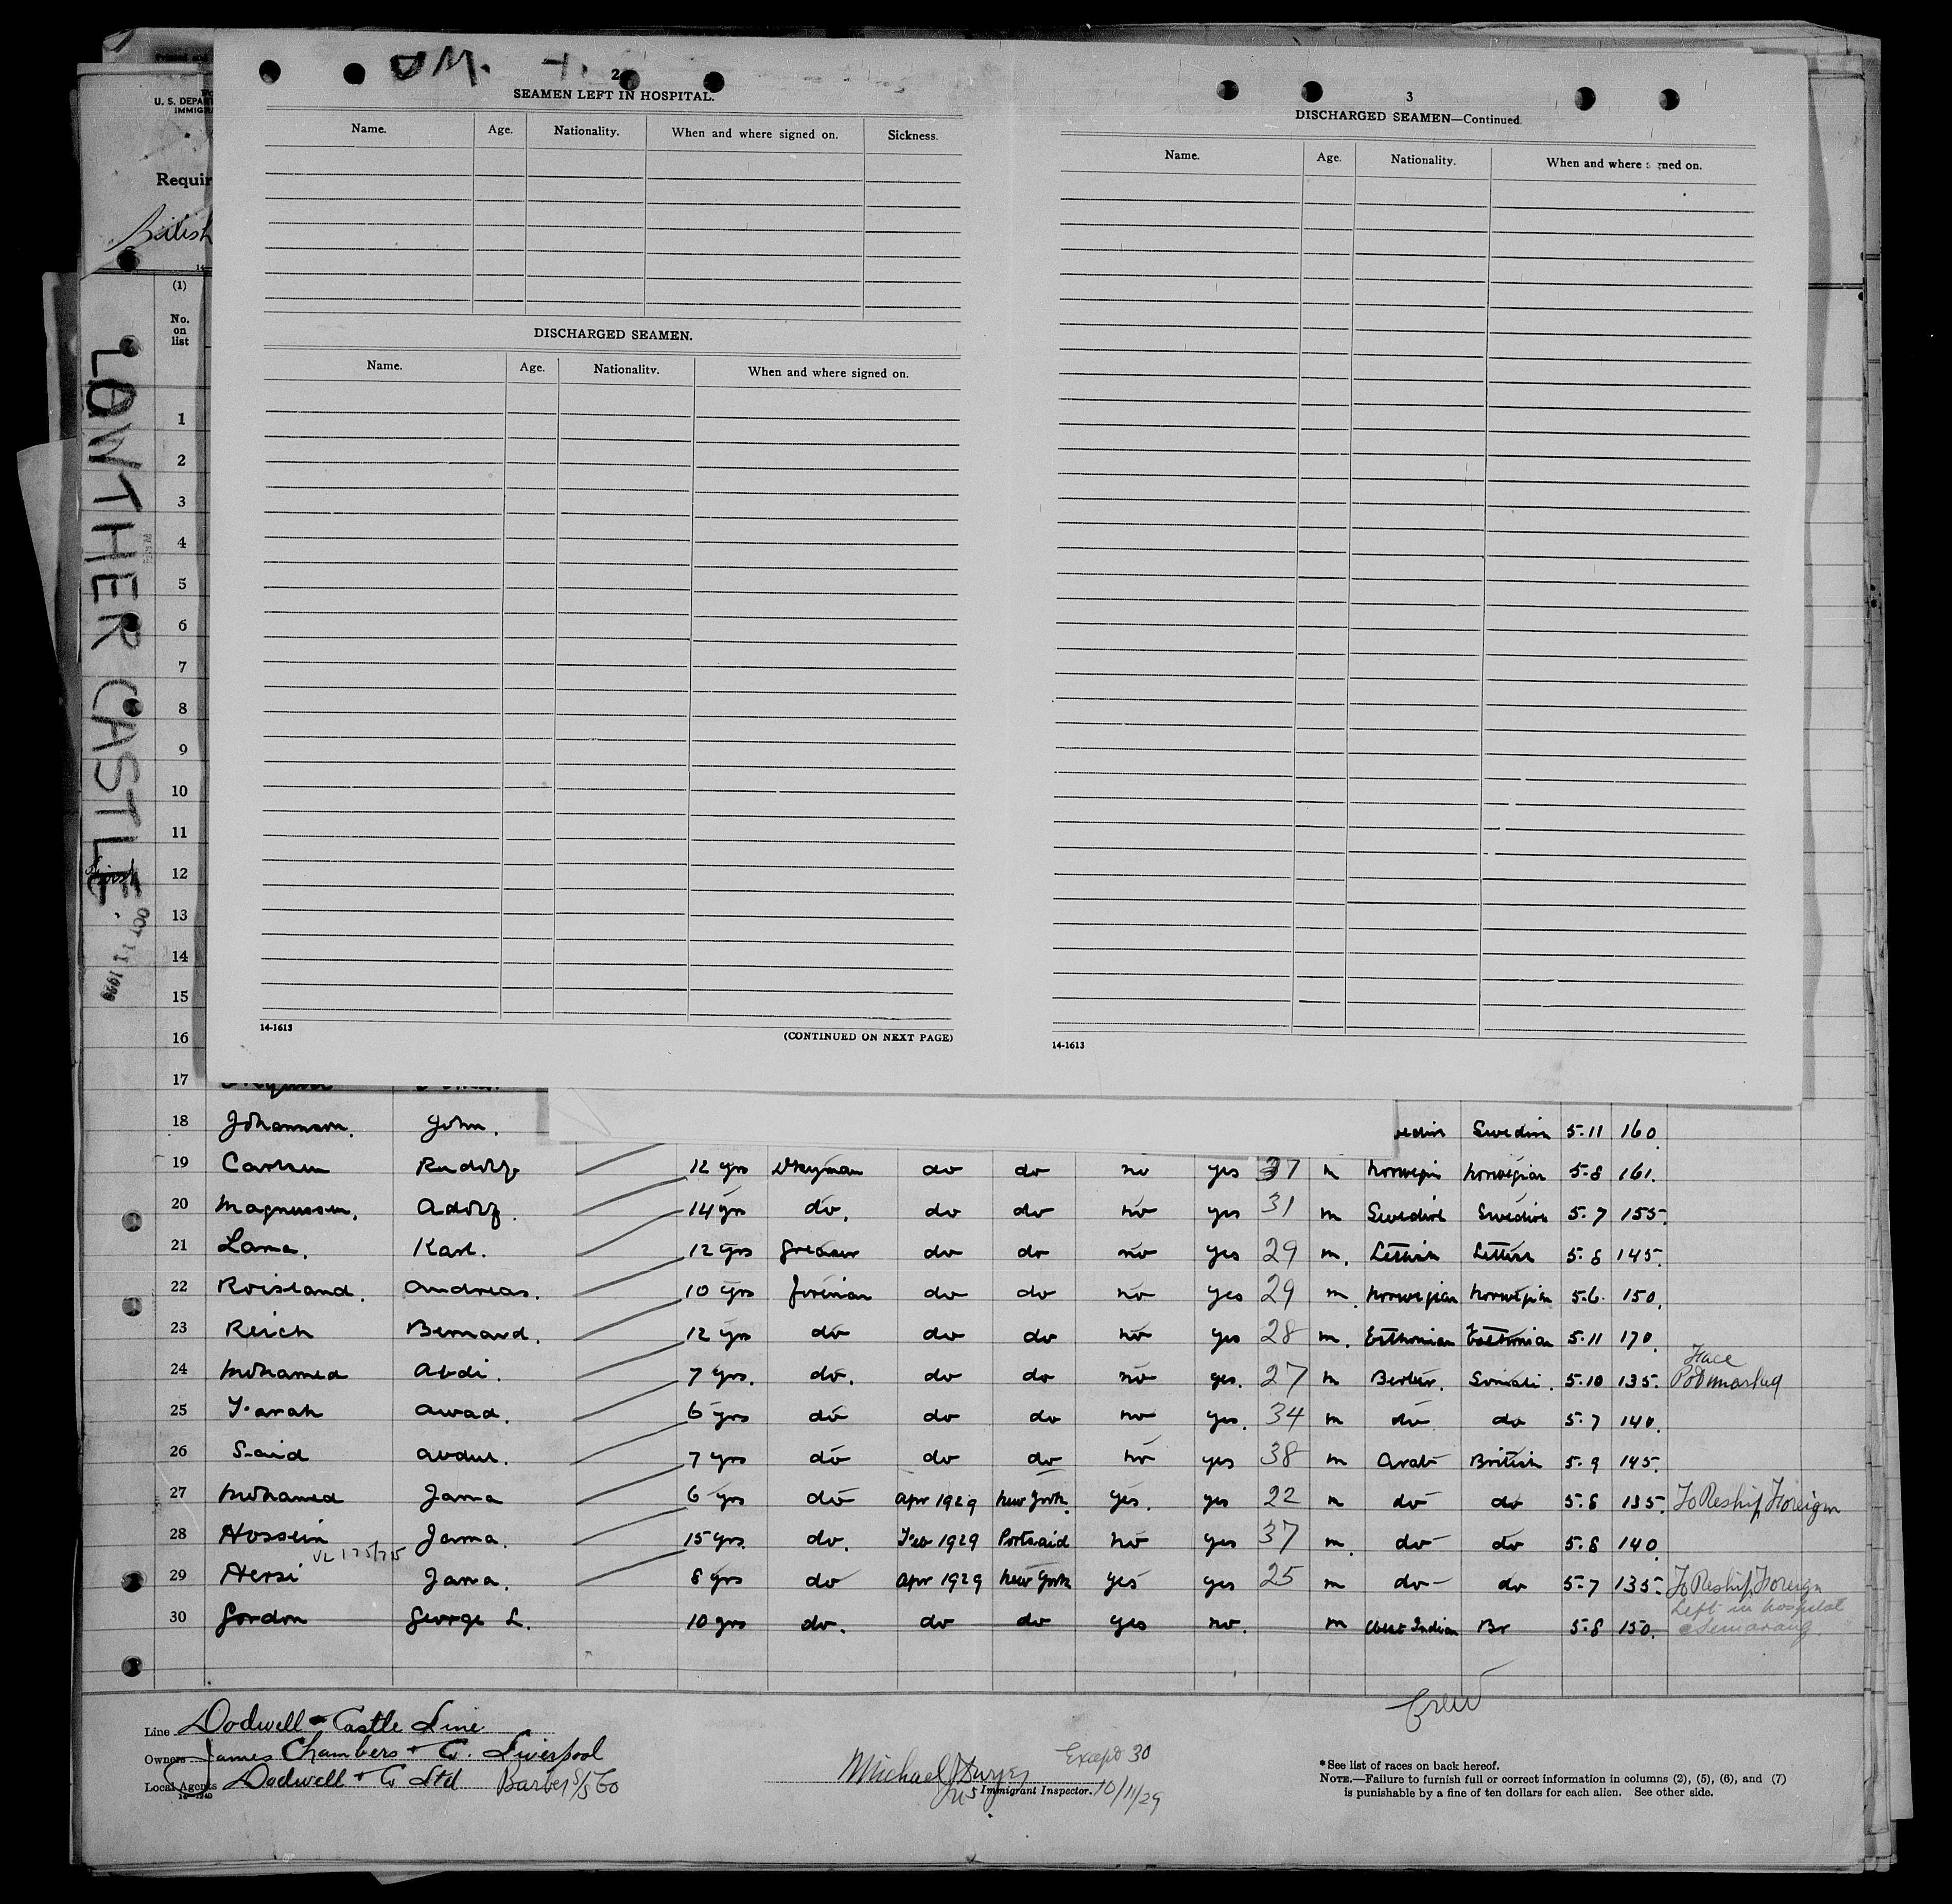 2
SEAMEN LEFT IN HOSPITAL.
Name. Age. Nationality. When and where signed on. Sickness.
DISCHARGED SEAMEN.
Name. Age. Nationality. When and where signed on.
14-1613 (CONTINUED ON NEXT PAGE)
3
DISCHARGED SEAMEN—Continued
Name. Age. Nationality. When and where signed on.
14-1613
U. S. DEPAR
IMMIGRA
Requir
British
(1)
No.
on
list
LOWTHER CASTLE
OCT 11 1929
1
2
3
4
5
6
7
8
9
10
11
12
13
14
15
16
17
18 Johannson. John. Swedish 5.11 160.
19 Carlsen Rudolf 12 yrs do do no yes 37 m Norwegian Norwegian 5.8 161.
20 Magnussen. Adolf. 14 yrs do. do do no yes 31 m Swedish Swedish 5.7 155.
21 Karl. 12 yrs Greaser do do no yes 29 m. Lettish Lettish 5.8 145.
22 Roisland. Andreas. 10 yrs fireman do do no yes 29 m. Norwegian Norwegian 5.6. 150.
23 Reich Bernard. 12 yrs do do do no yes 28 m. Esthonian Esthonian 5.11 170.
24 Mohamed Abdi. 7 yrs. do. do do no yes. 27 m Somali. 5.10 135. Face Pockmarked
25 Farah Awad. 6 yrs do do do no yes. 34 m do do 5.7 140.
26 Said Abdul. 7 yrs do do do no yes 38 m Arab British 5.9 145.
27 Mohamed Jama 6 yrs do Apr 1929 New York. yes. yes 22 m do do 5.8 135. To Reship Foreign
28 Hossein Jama. 15 yrs. do. Feb 1929 Portsaid no yes 37 m. do do 5.8 140.
29 Hersi Jama. 8 yrs do Apr 1929 New York yes yes 25 m do do 5.7 135. To Reship Foreign
30 Gordon George L. 10 yrs do. do do yes no. m West Indian Br 5.8 150. Left in hospital Semarang.
Crew
Line Dodwell-Castle Line
Owners James Chambers & Co. Liverpool
Local Agents Dodwell & Co Ltd Barber S/S Co
14-1240
Except 30
Michael
Immigrant Inspector. 10/11/29
* See list of races on back hereof.
NOTE.—Failure to furnish full or correct information in columns (2), (5), (6), and (7)
is punishable by a fine of ten dollars for each alien. See other side.